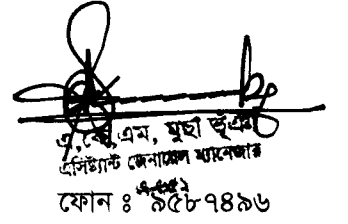 এ, কে, এম, মুছা ভূঁঞা
এসিষ্ট্যান্ট জেনারেল ম্যানেজার
ফোন ঃ ৯৫৮৭৪৯৬